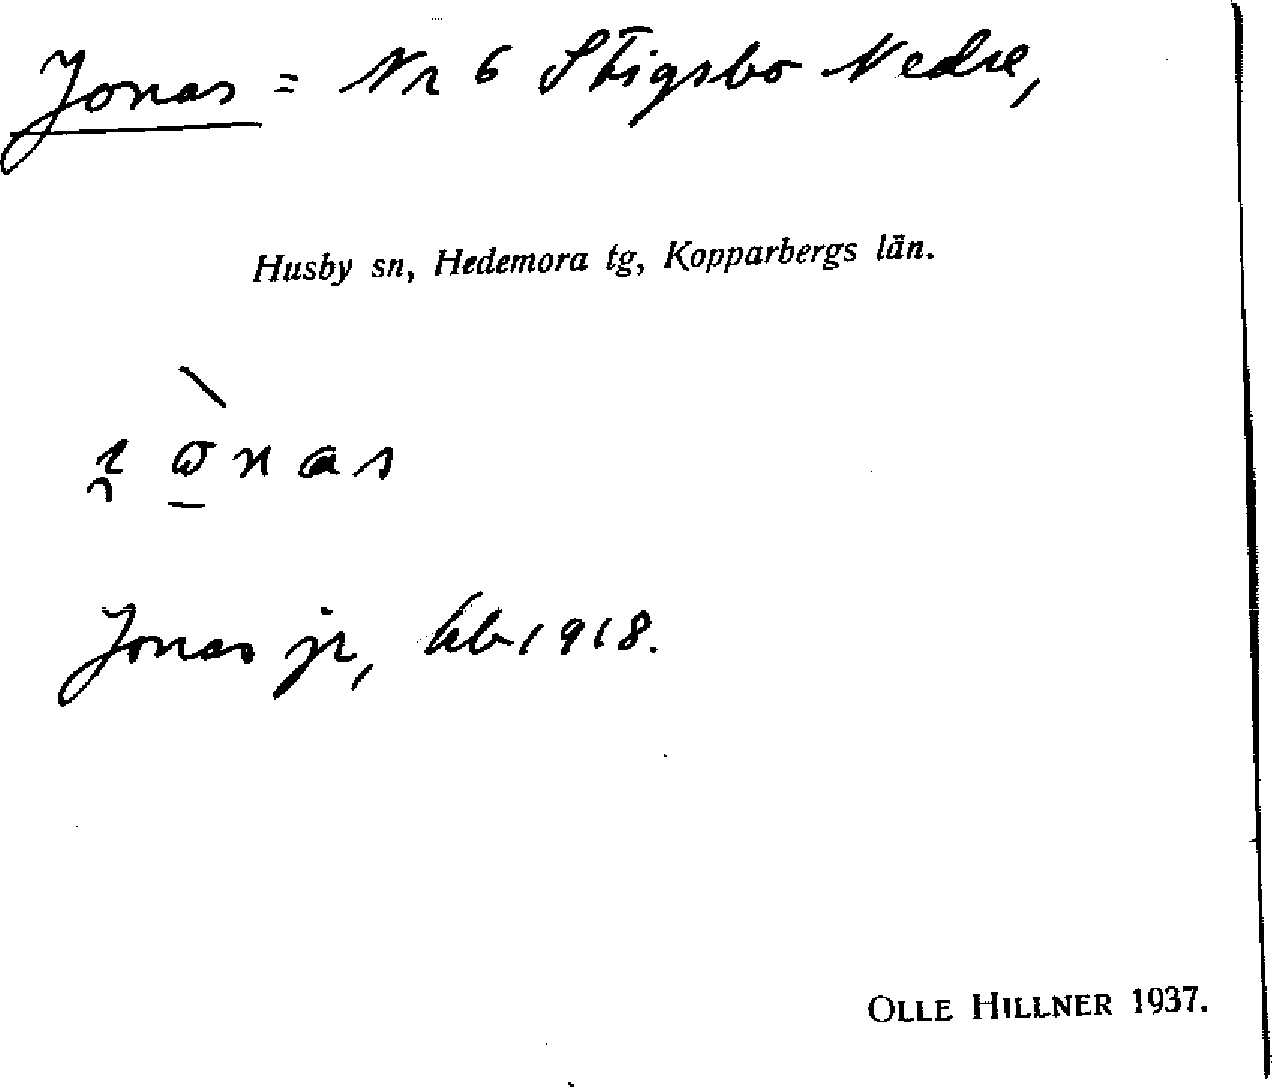 Jonas = Nr 6 Stigsbo Nedre,
Husby sn, Hedemora tg, Kopparbergs län.
Jonas jr, kb 1918.
OLLE HILLNER 1937.